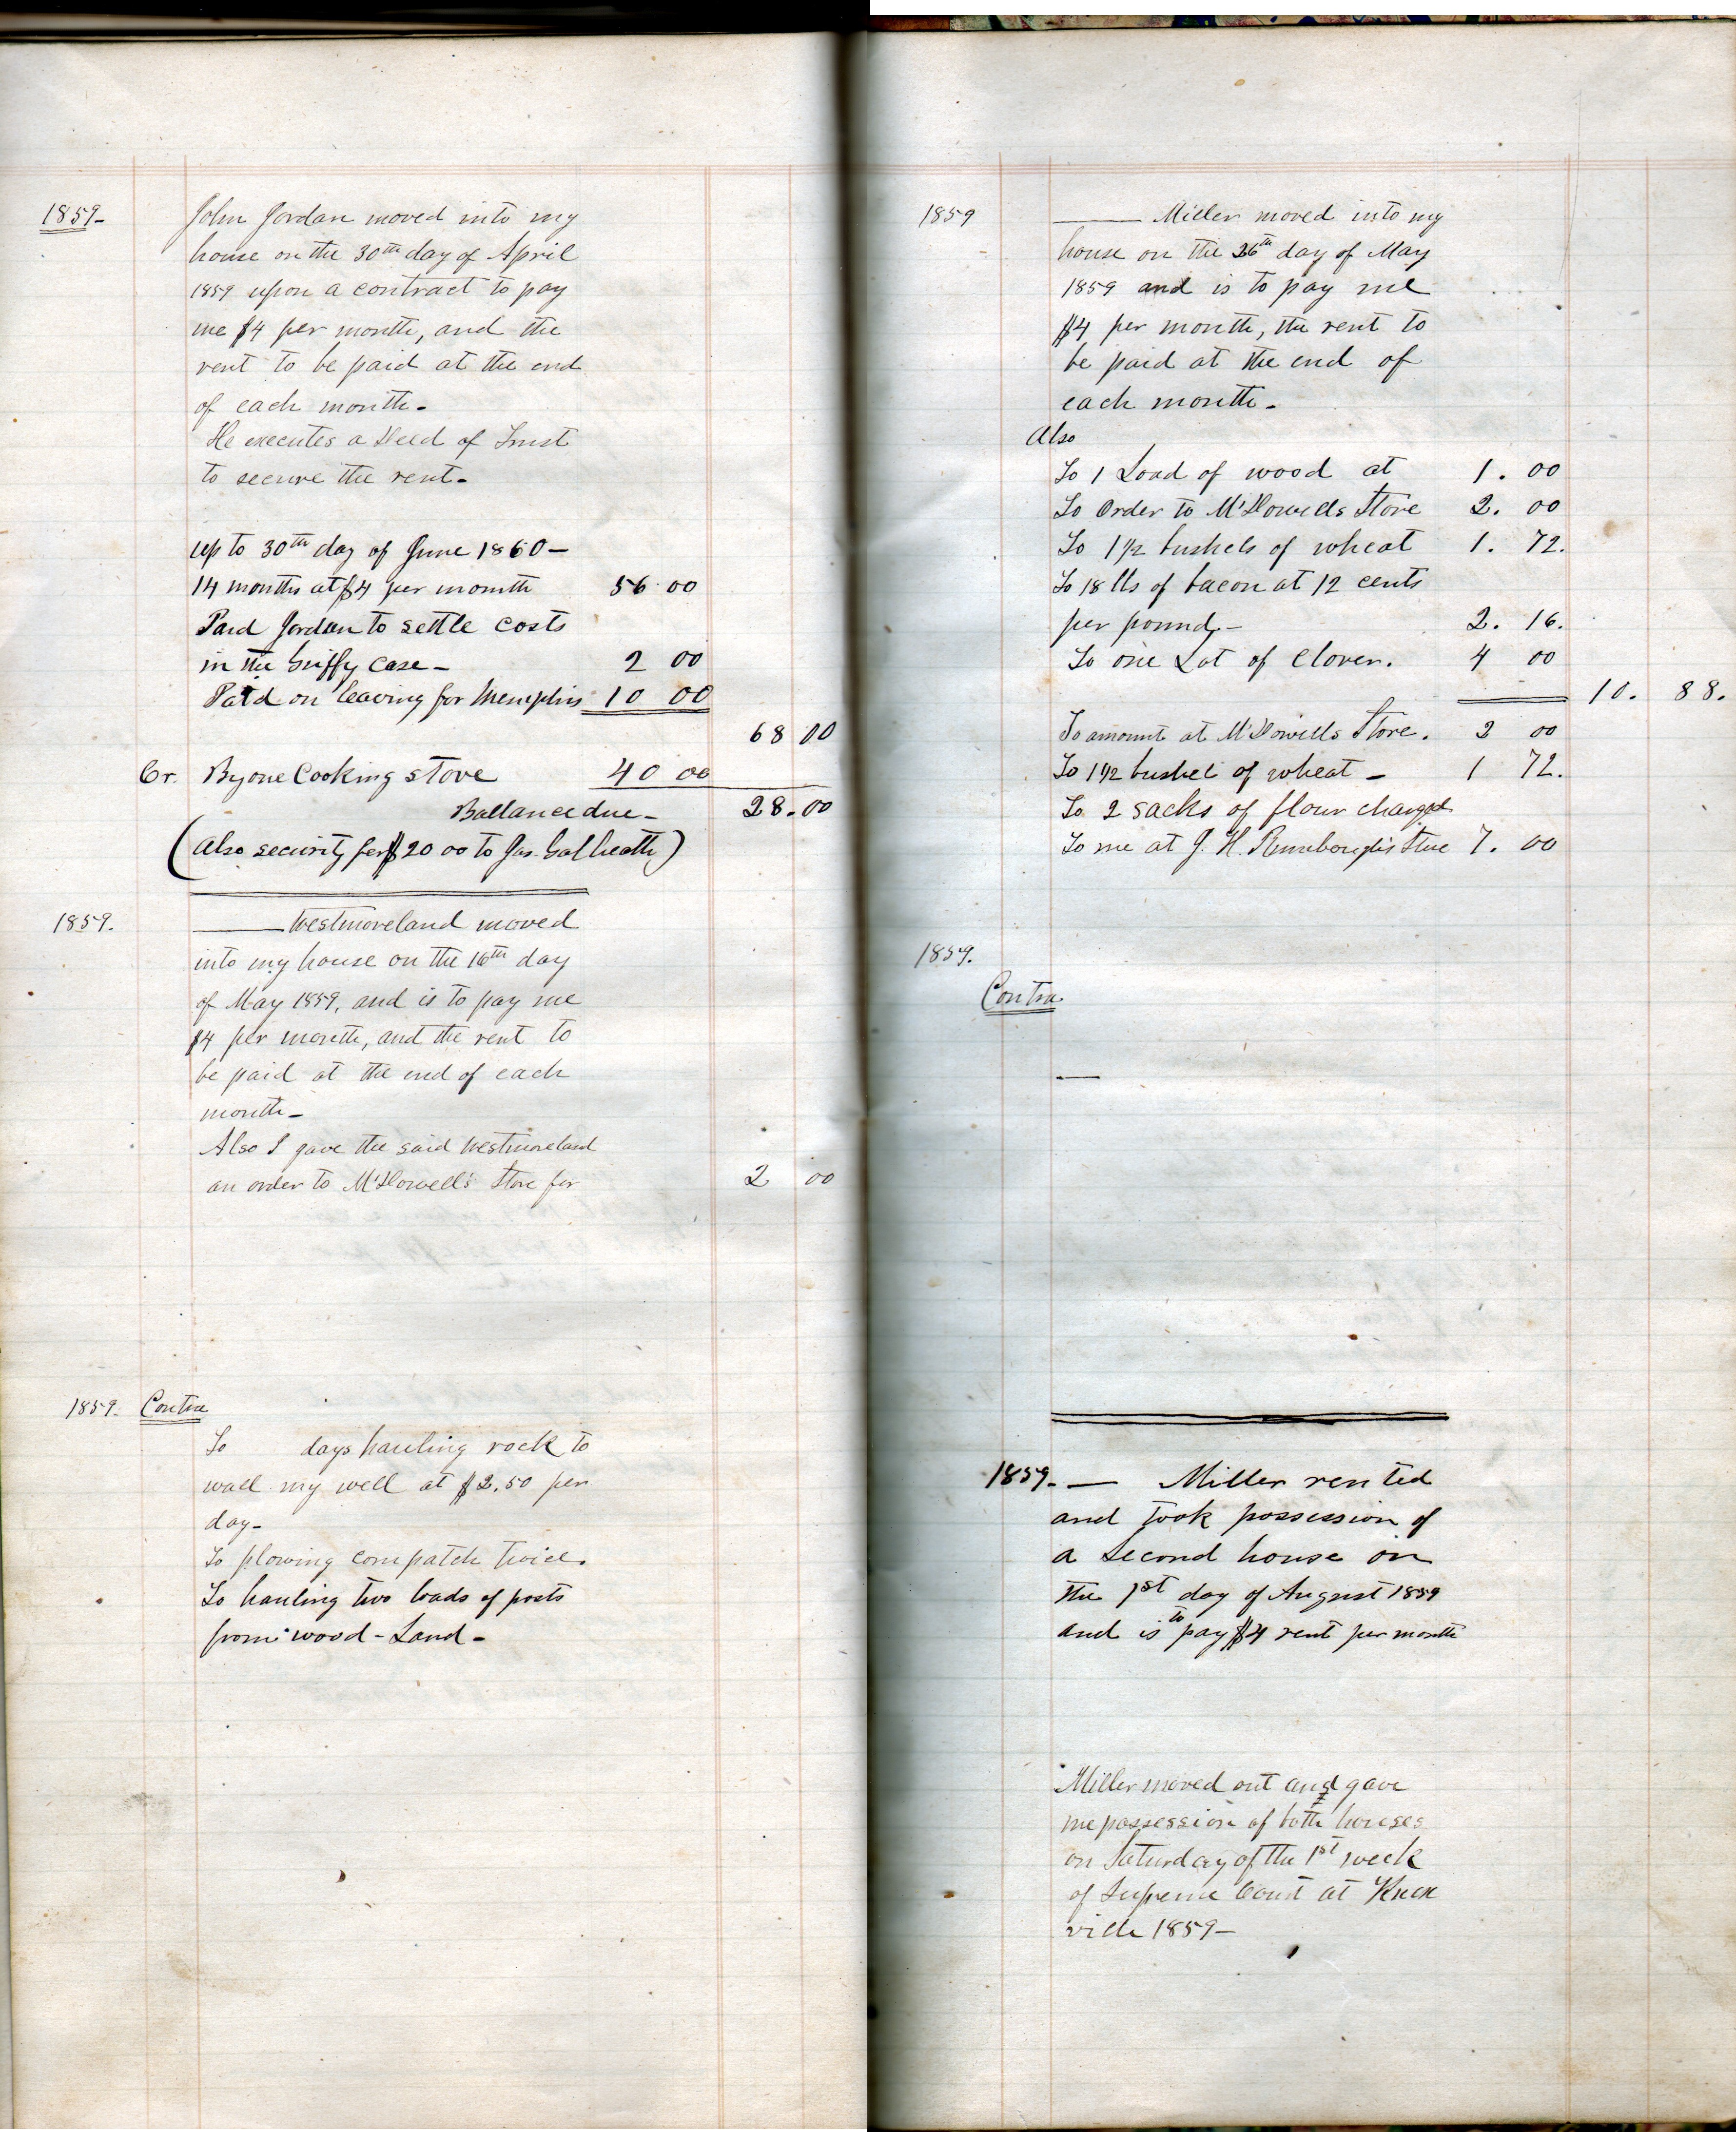 1859-
John Jordan moved into my
house on the 30th day of April
1859 upon a contract to pay
me $4 per month, and the
rent to be paid at the end
of each month-
He executes a Deed of Trust
to secure the rent-
up to 30th day of June 1860-
14 months at $4 per month 56 00
Paid Jordan to settle costs
in the case- 2 00
Paid on leaving for Memphis 10 00
68 00
Cr. By one Cooking stove 40 00
Ballance due- 28.00
(Also security for $20 00 to Jas. Galbeath)
1859.
——— Westmoreland moved
into my house on the 16th day
of May 1859, and is to pay me
$4 per month, and the rent to
be paid at the end of each
month-
Also I gave the said Westmoreland
an order to McDowell's Store for 2 00
1859. Contra
To days hauling rock to
wall my well at $2.50 per
day-
To plowing corn patch twice.
To hauling two loads of posts
from wood-Land-
1859
——— Miller moved into my
house on the 26th day of May
1859 and is to pay me
$4 per month, the rent to
be paid at the end of
each month-
Also
To 1 Load of wood at 1. 00
To Order to McDowells Store 2. 00
To 1 1/2 bushels of wheat 1. 72.
To 18 lbs of bacon at 12 cents
per pound- 2. 16.
To one Lot of Clover. 4 00
10. 88.
To amount at McDowells Store. 2 00
To 1 1/2 bushel of wheat- 1 72.
To 2 sacks of flour charged
To me at J. H. Store 7. 00
1859.
Contra
—
1859- — Miller rented
and took possession of
a Second house on
the 1st day of August 1859
and is to pay $4 rent per month
Miller moved out and gave
me possession of both houses
on Saturday of the 1st week
of Supreme Court at Knox
ville 1859-